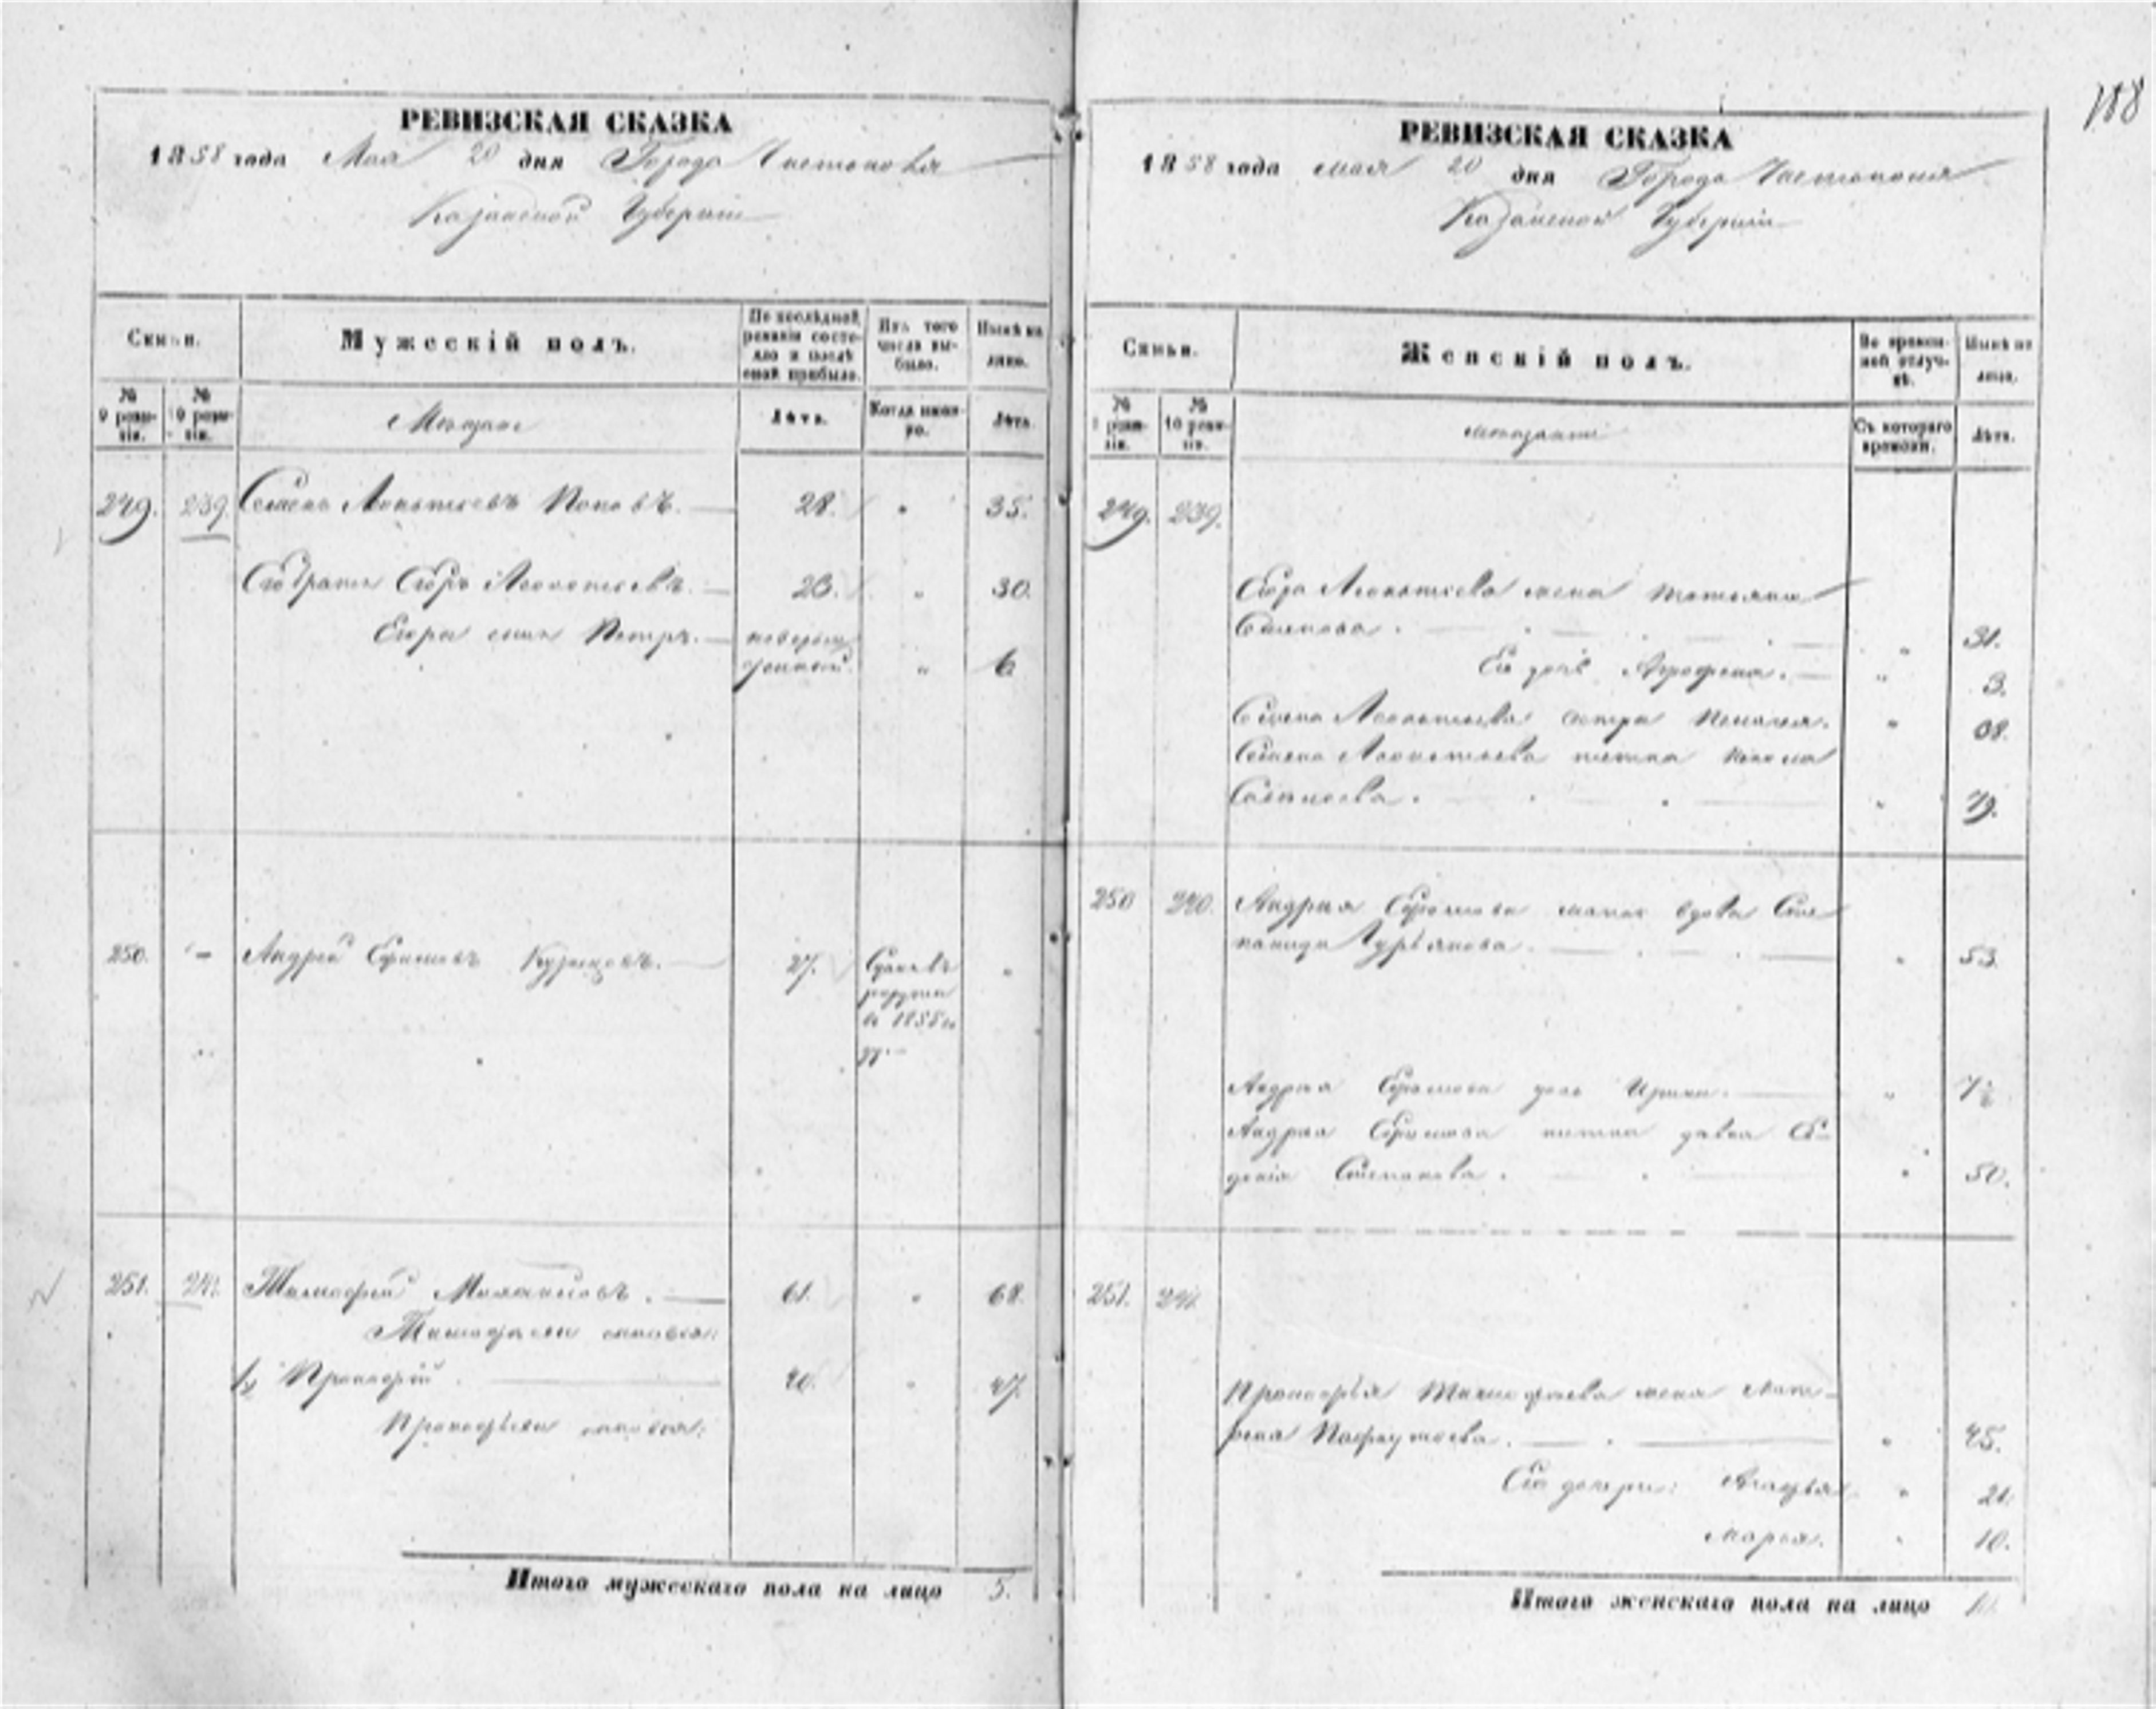 188
РЕВИЗСКАЯ СКАЗКА
1858 года Мая 20 дня Города Чистополя
Казанской Губерніи
Семьи.
Мужескій полъ.
По послѣдней ревизіи состояло и послѣ оной прибыло.
Изъ того числа выбыло.
Нынѣ на лицо.
№ 9 ревизіи.
№ 10 ревизіи.
Мѣщане
Лѣта.
Когда именно.
Лѣта.
249. 239. Семенъ Леонтьевъ Поповъ. 28. " 35.
Его братъ Егоръ Леонтьевъ. 23. " 30.
Егора сынъ Петръ. " 6
250. - Андрей Ефимовъ Кузнецовъ. 27. Сданъ въ рекруты в 1855 "
251. 241. Тимофей 61. " 68.
Тимофеевы сыновья:
1, Прокофій. 40. " 47.
Прокофьевы сыновья:
Итого мужескаго пола на лицо 5.
РЕВИЗСКАЯ СКАЗКА
1858 года мая 20 дня Города Чистополя
Казанской Губерніи
Семьи.
Женскій полъ.
Во временной отлучкѣ.
Нынѣ на лицо.
№ 9 ревизіи.
№ 10 ревизіи.
мѣщане
Съ котораго времени.
Лѣта.
249. 239.
Егора Леонтьева жена Татьяна
31.
Его дочь Агрофена. " 3.
Семена Леонтьева сестра Пелагея. " 38.
Семена Леонтьева тетка
Савельева. " 79.
250 240. Андрея Ефимова мать вдова Сте-
панида Гурьянова. " 53.
Андрея Ефимова дочь Ирина. " 7½
Андрея Ефимова тетка девка Ев-
докія Степанова. " 50.
251. 241.
Прокофья Тимофеева жена Мат-
рена Пафнутьева. " 45.
Его дочери: Агафья " 21.
Марья. " 10.
Итого женскаго пола на лицо 10.